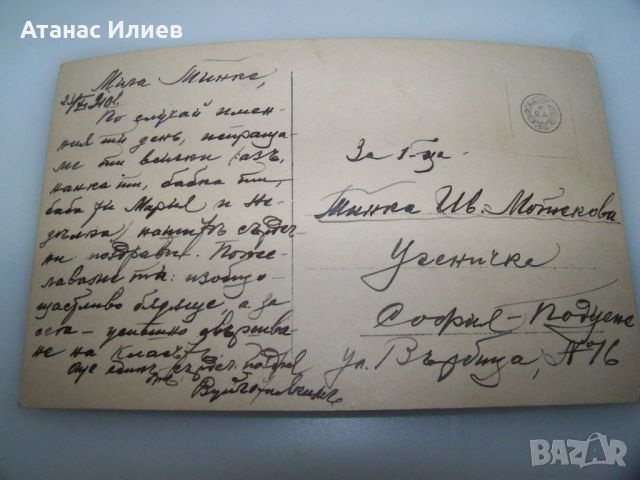 Атанас Илиев
Мила Минка,
По случай имен-
ния ти день, испраща-
ме ти всички (азъ,
нанка ти, бабка ти,
баба ти Мария и Не-
дѣлка) нашитѣ сърдеч-
ни поздрави. Поже-
лаваме ти: изобщо
щастливо бѫдяще, а за
сега – успешно свършва-
не на класъ.
още единъ сърдеч. поздрав
За Г-ца
Минка Ив.
Ученичка
София – Подуене
ул. Върбица, № 16
BAZAR